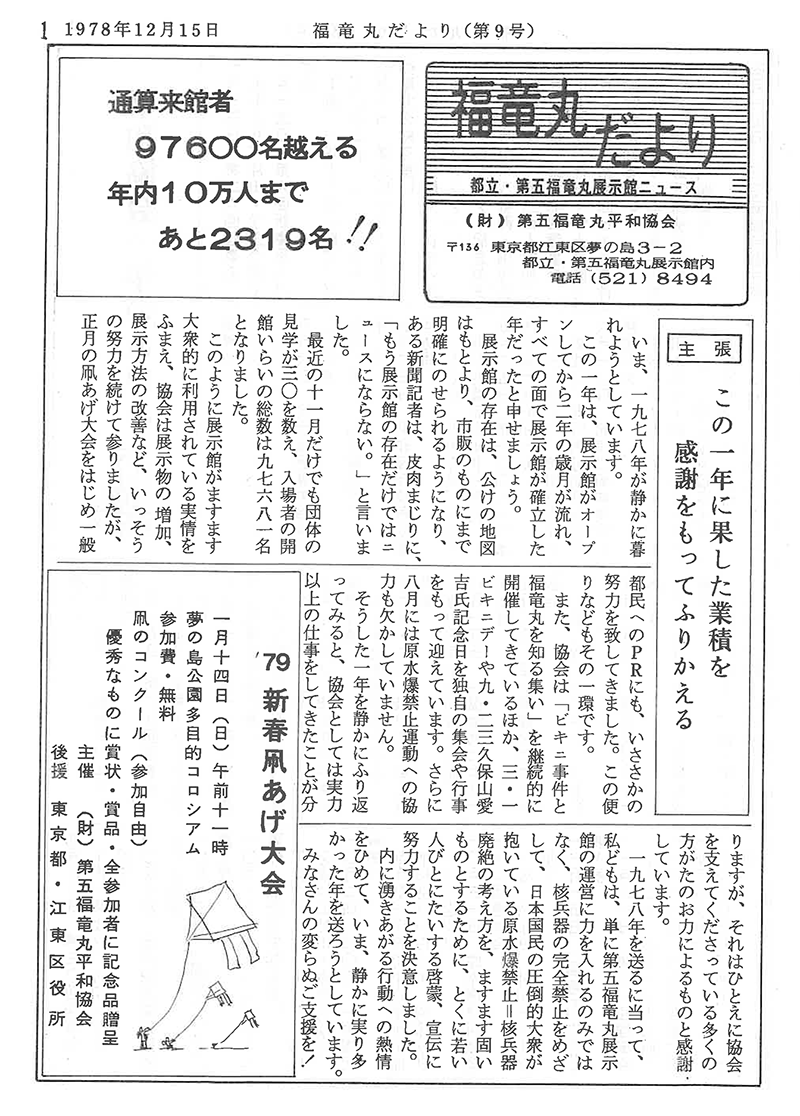 1 1978年12月15日 福竜丸だより（第9号）
福竜丸だより
都立・第五福竜丸展示館ニュース
（財）第五福竜丸平和協会
〒136 東京都江東区夢の島3－2
都立・第五福竜丸展示館内
電話（521）8494
通算来館者
97600名越える
年内10万人まで
あと2319名!!
主張
この一年に果した業積を
感謝をもってふりかえる
いま、一九七八年が静かに暮
れようとしています。
この一年は、展示館がオープ
ンしてから二年の歳月が流れ、
すべての面で展示館が確立した
年だったと申せましょう。
展示館の存在は、公けの地図
はもとより、市販のものにまで
明確にのせられるようになり、
ある新聞記者は、皮肉まじりに、
「もう展示館の存在だけではニ
ュースにならない。」と言いま
した。
最近の十一月だけでも団体の
見学が三〇を数え、入場者の開
館いらいの総数は九七六八一名
となりました。
このように展示館がますます
大衆的に利用されている実情を
ふまえ、協会は展示物の増加、
展示方法の改善など、いっそう
の努力を続けて参りましたが、
正月の凧あげ大会をはじめ一般
都民へのPRにも、いささかの
努力を致してきました。この便
りなどもその一環です。
また、協会は「ビキニ事件と
福竜丸を知る集い」を継続的に
開催してきているほか、三・一
ビキニデーや九・二三久保山愛
吉氏記念日を独自の集会や行事
をもって迎えています。さらに
八月には原水爆禁止運動への協
力も欠かしていません。
そうした一年を静かにふり返
ってみると、協会としては実力
以上の仕事をしてきたことが分
りますが、それはひとえに協会
を支えてくださっている多くの
方がたのお力によるものと感謝
しています。
一九七八年を送るに当って、
私どもは、単に第五福竜丸展示
館の運営に力を入れるのみでは
なく、核兵器の完全禁止をめざ
して、日本国民の圧倒的大衆が
抱いている原水爆禁止＝核兵器
廃絶の考え方を、ますます固い
ものとするために、とくに若い
人びとにたいする啓蒙、宣伝に
努力することを決意しました。
内に湧きあがる行動への熱情
をひめて、いま、静かに実り多
かった年を送ろうとしています。
みなさんの変らぬご支援を！
'79 新春凧あげ大会
一月十四日（日）午前十一時
夢の島公園多目的コロシアム
参加費・無料
凧のコンクール（参加自由）
優秀なものに賞状・賞品・全参加者に記念品贈呈
主催 （財）第五福竜丸平和協会
後援 東京都・江東区役所